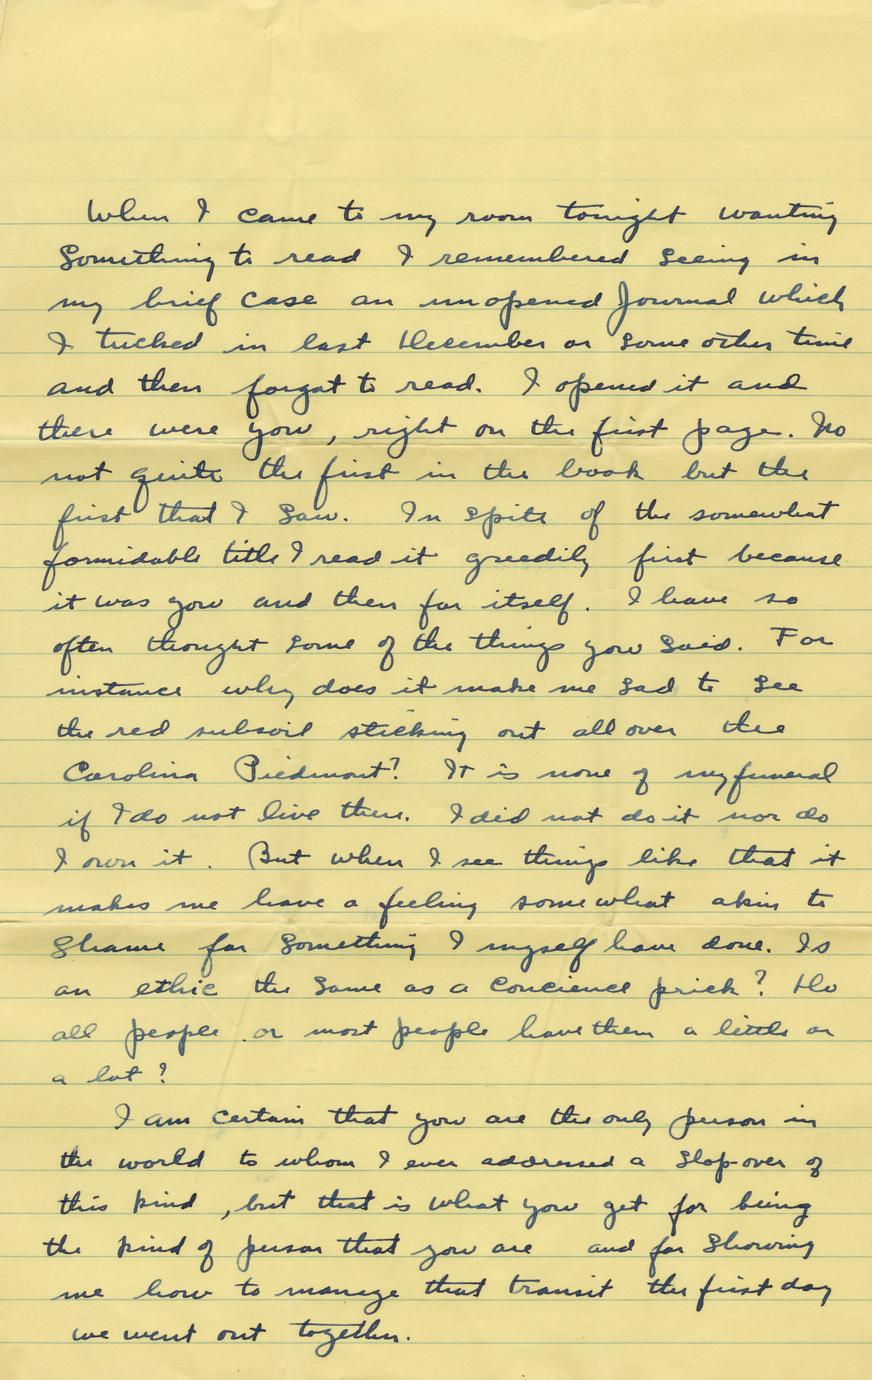 When I came to my room tonight wanting
Something to read I remembered seeing in
my brief case an unopened Journal which
I tucked in last December or some other time
and then forgot to read. I opened it and
there were you, right on the first page. No
not quite the first in the book but the
first that I saw. In spite of the somewhat
formidable title I read it greedily first because
it was you and then for itself. I have so
often thought some of the things you said. For
instance why does it make me sad to see
the red subsoil sticking out all over the
Carolina Piedmont? It is none of my funeral
if I do not live there. I did not do it nor do
I own it. But when I see things like that it
makes me have a feeling somewhat akin to
Shame for something I myself have done. Is
an ethic the same as a concience prick? Do
all people or most people have them a little or
a lot?
I am certain that you are the only person in
the world to whom I ever addressed a slop-over of
this kind, but that is what you get for being
the kind of person that you are and for showing
me how to manage that transit the first day
we went out together.